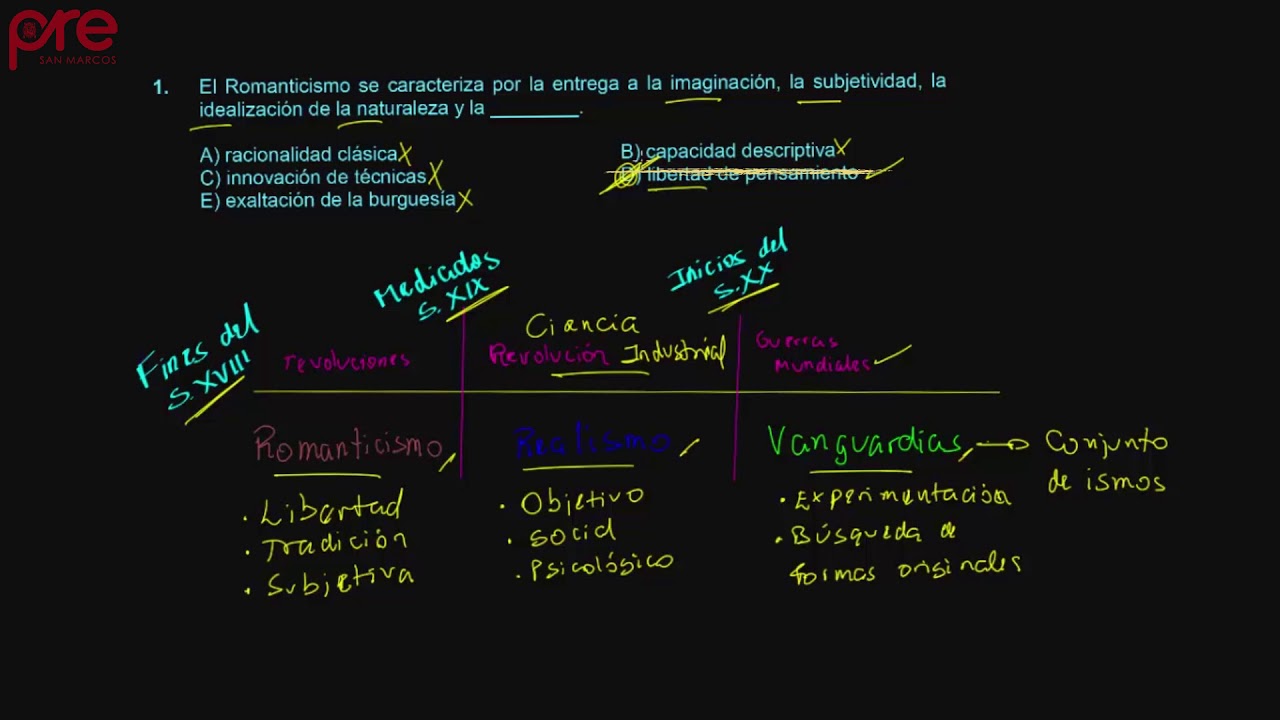 pre
SAN MARCOS
1. El Romanticismo se caracteriza por la entrega a la imaginación, la subjetividad, la
idealización de la naturaleza y la _________.
A) racionalidad clásica X
B) capacidad descriptiva X
C) innovación de técnicas X
D) libertad de pensamiento
E) exaltación de la burguesía X
Fines del
S. XVIII
Mediados
S. XIX
Inicios del
S. XX
revoluciones
Ciencia
Revolución Industrial
Guerras
Mundiales
Romanticismo
Realismo
Vanguardias → Conjunto
de ismos
· Libertad
· Tradición
· Subjetiva
· Objetivo
· Social
· Psicológico
· Experimentación
· Búsqueda de
formas originales